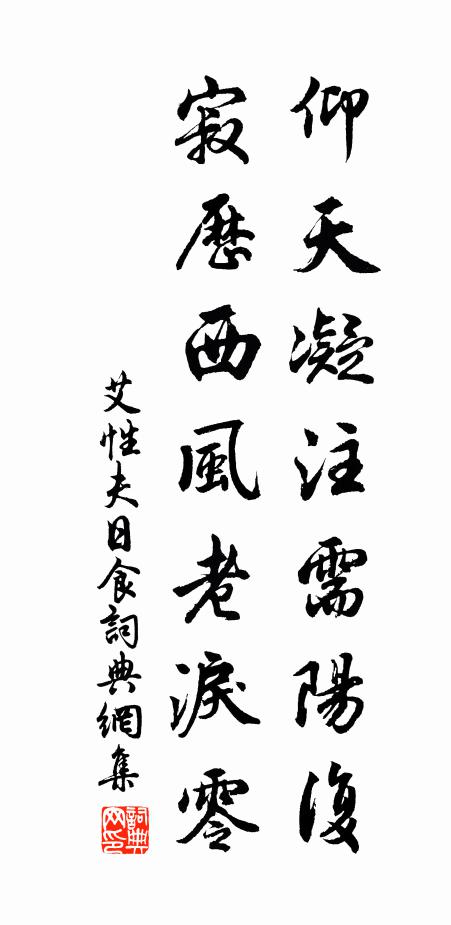 仰天凝注需陽復
寂歷西風老淚零
艾性夫日食詞典網集
詞典網印